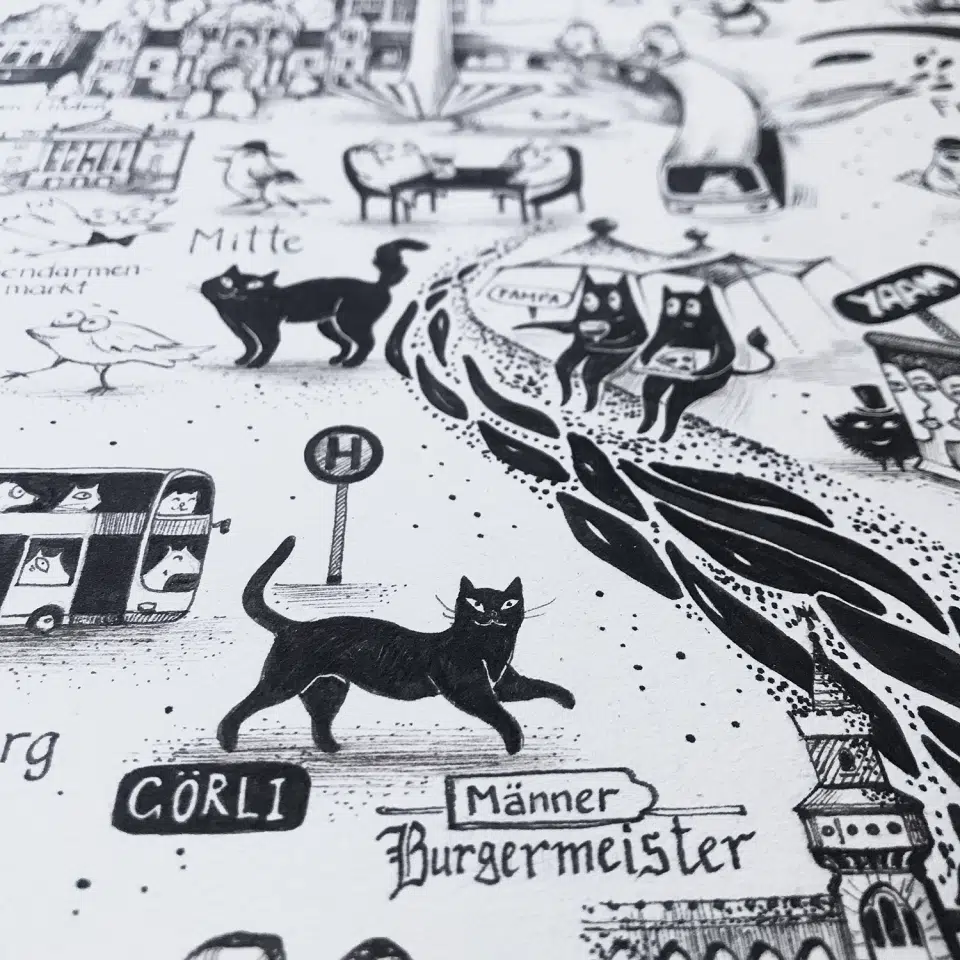 Mitte
endarmen-
markt
PAMPA
YAAM
H
rg
GÖRLI
Männer
Burgermeister